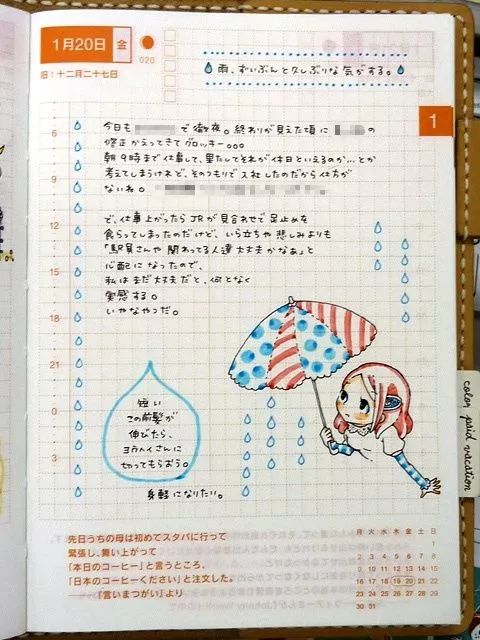 1月20日 金
020
旧：十二月二十七日
雨、ずいぶんと久しぶりな気がする。
1
今日も で徹夜。終わりが見えた頃に の
修正かえってきてグロッキー。。。
朝9時まで仕事して、果たしてそれが休日といえるのか…とか
考えてしまうけれど、そのつもりで入社したのだから仕方が
ないね。
で、仕事上がったらJRが見合わせで足止めを
食らってしまったのだけど、いら立ちや悲しみよりも
「駅員さんや関わってる人達大丈夫かなあ」と
心配になったので、
私はまだ大丈夫だと、何となく
実感する。
いやなやつだ。
6
9
12
15
18
21
0
3
短い
この前髪が
伸びたら、
ヨウヘイさんに
切ってもらおう。
身軽になりたい。
color paid vacation
先日うちの母は初めてスタバに行って
緊張し、舞い上がって
「本日のコーヒー」と言うところ、
「日本のコーヒーください」と注文した。
——『言いまつがい』より
月 火 水 木 金 土 日
1
2 3 4 5 6 7 8
9 10 11 12 13 14 15
16 17 18 19 20 21 22
23 24 25 26 27 28 29
30 31